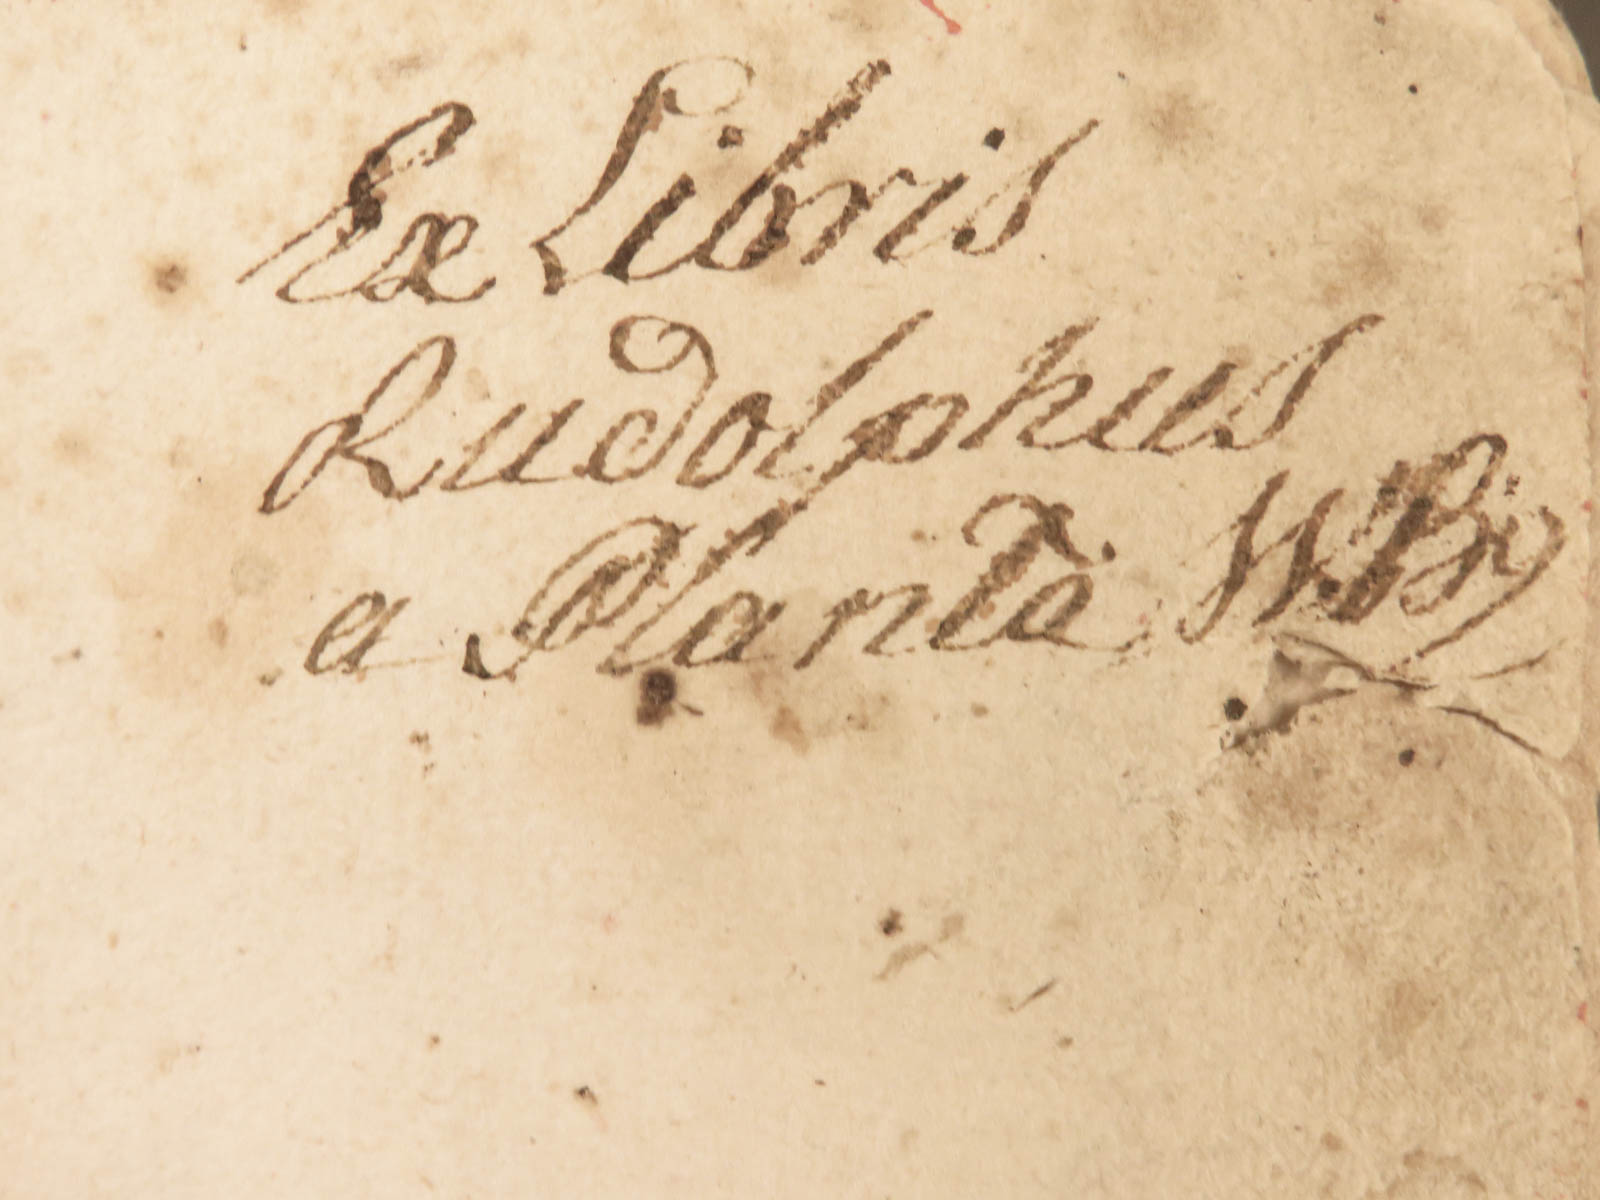 Ex Libris
Rudolphus
a Planta